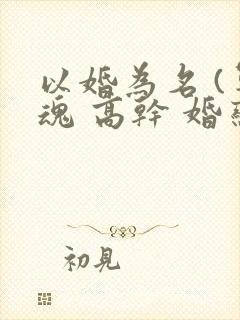 以婚為名(
魂 高幹 婚
初見